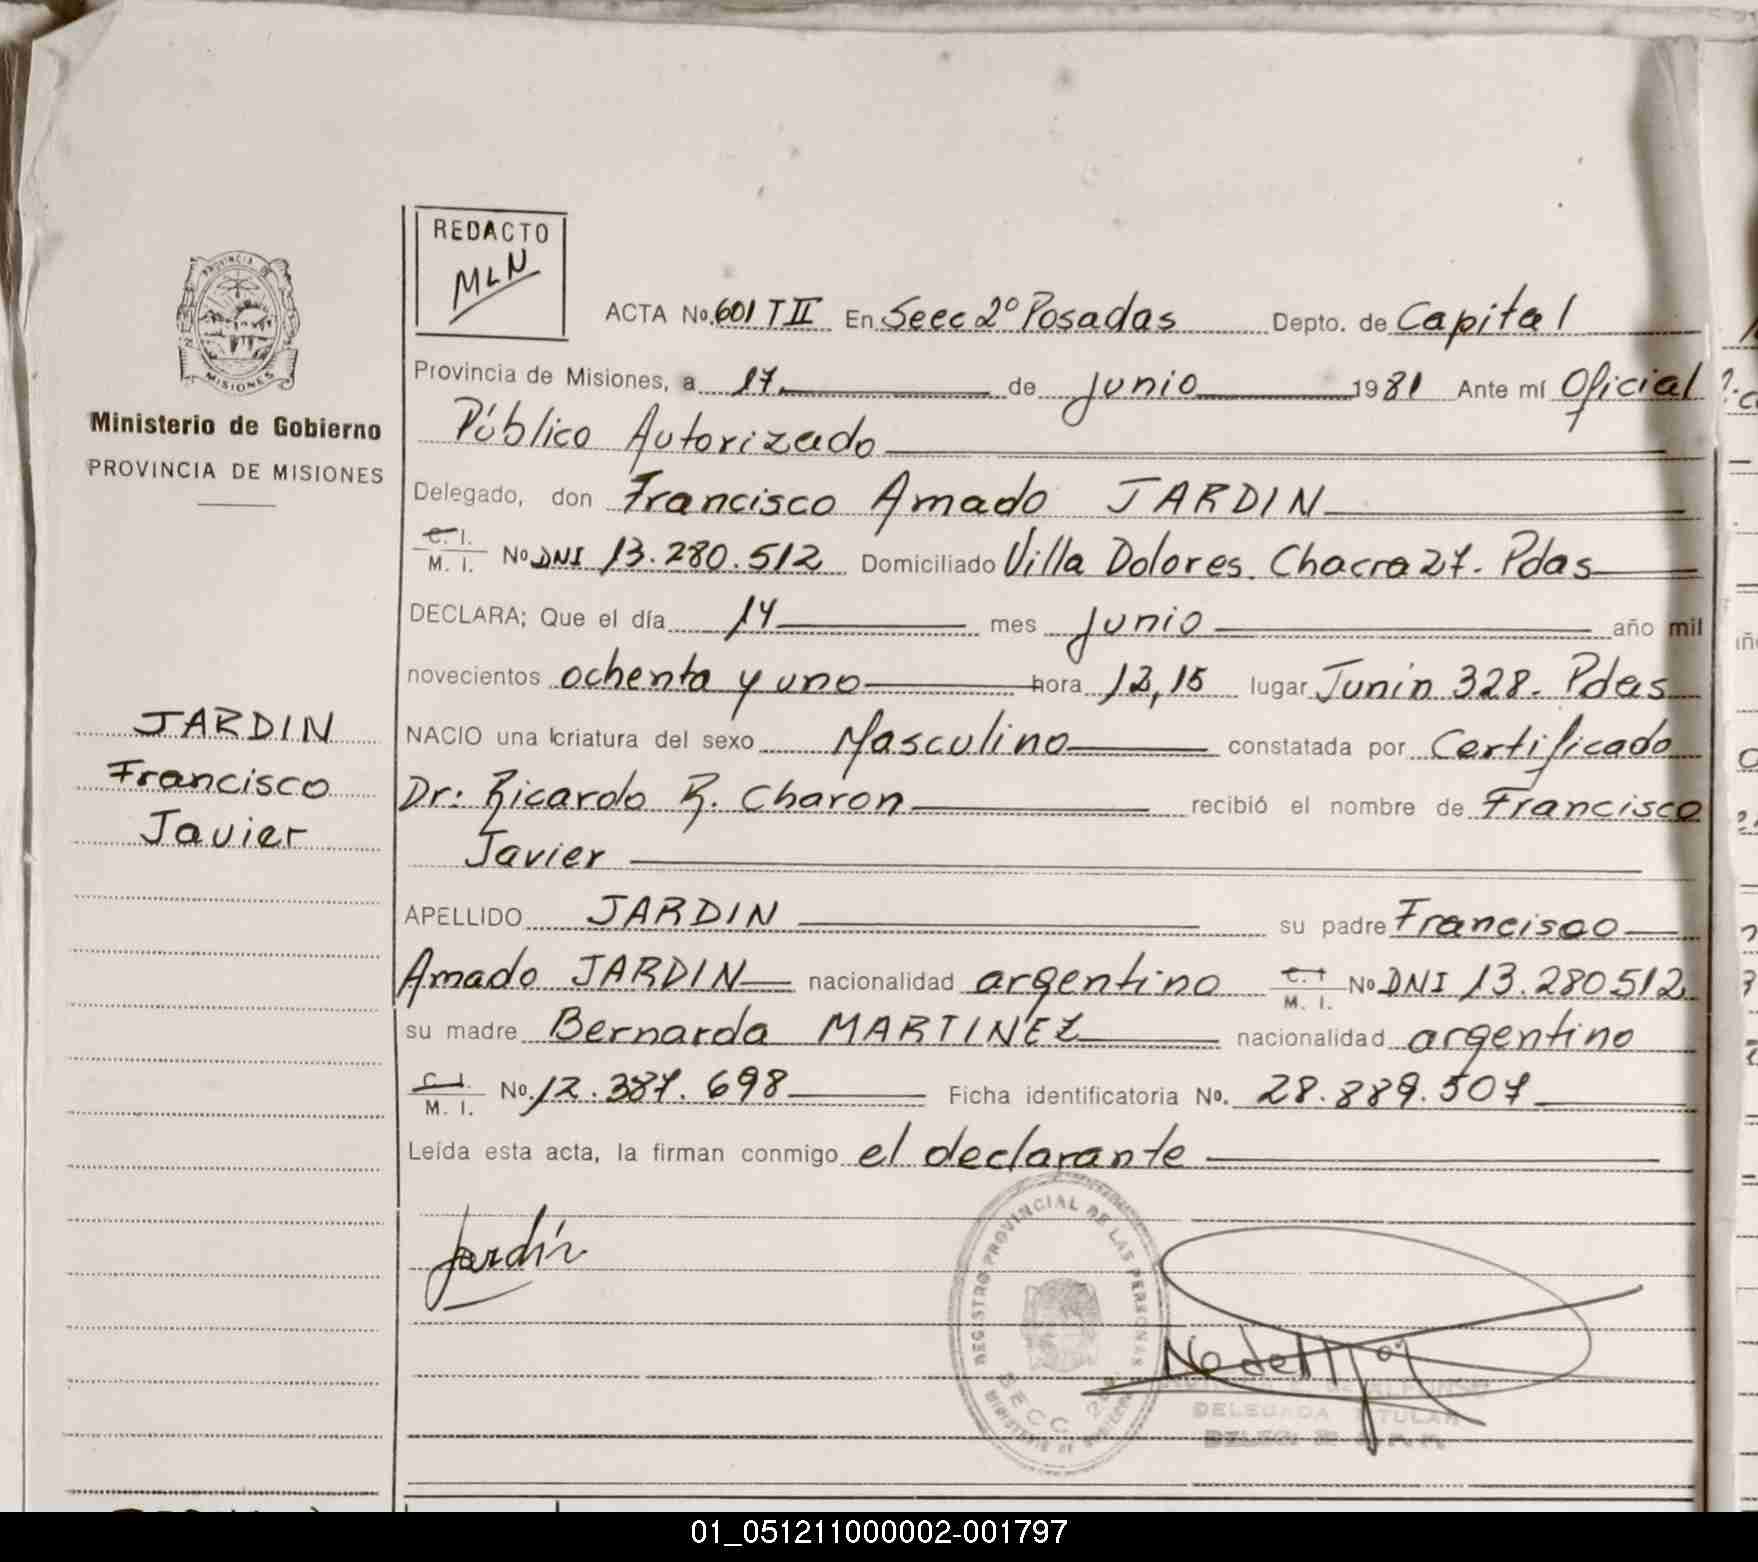 REDACTO
MLN
PROVINCIA DE
MISIONES
Ministerio de Gobierno
PROVINCIA DE MISIONES
JARDIN
Francisco
Javier
ACTA No. 601 T II En Secc 2º Posadas Depto. de Capital
Provincia de Misiones, a 17 de junio 1981 Ante mí Oficial
Público Autorizado
Delegado, don Francisco Amado JARDIN
C. I.
M. I. No DNI 13.280.512 Domiciliado Villa Dolores. Chacra 27. Pdas
DECLARA; Que el día 14 mes junio año mil
novecientos ochenta y uno hora 12,15 lugar Junin 328. Pdas
NACIO una criatura del sexo Masculino constatada por Certificado
Dr: Ricardo R. Charon recibió el nombre de Francisco
Javier
APELLIDO JARDIN su padre Francisco
Amado JARDIN nacionalidad argentino C. I. M. I. No DNI 13.280512
su madre Bernarda MARTINEZ nacionalidad argentino
C. I.
M. I. No. 12.387.698 Ficha identificatoria No. 28.889.507
Leída esta acta, la firman conmigo el declarante
Jardín
REGISTRO PROVINCIAL DE LAS PERSONAS
SECC. 2
MINISTERIO DE GOBIERNO
DELEGADA TITULAR
01_051211000002-001797